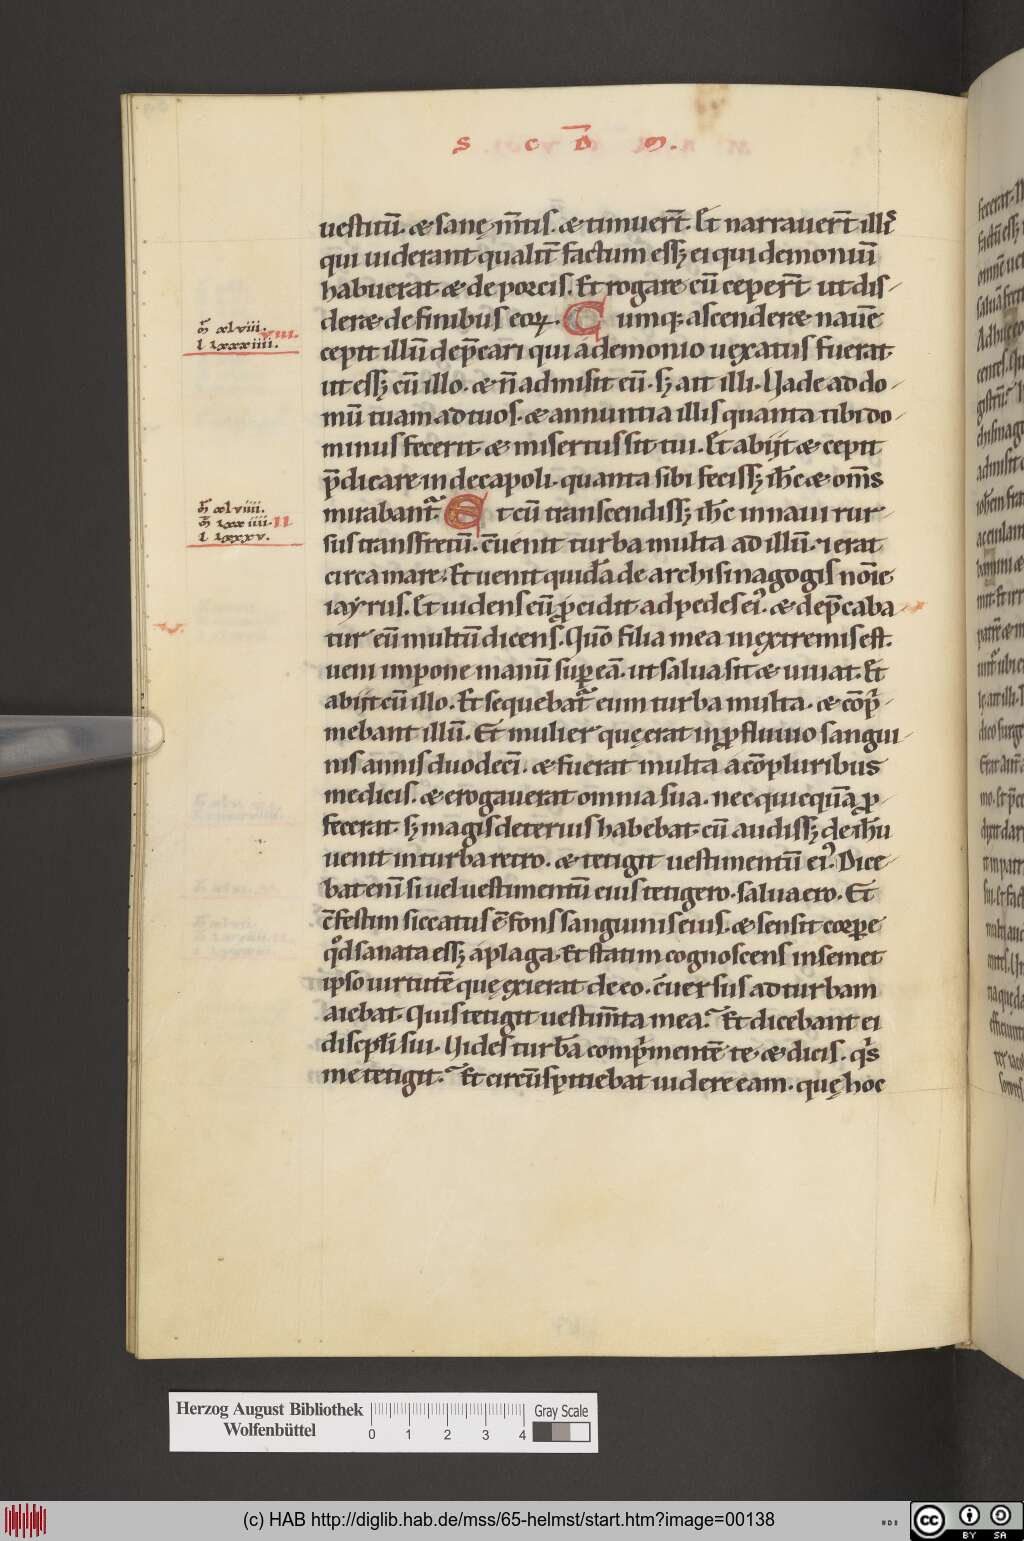 S C D̅ M.
uestitū. & sanę m̅tis. & timuer̅t. Et narrauer̅t illis
qui uiderant qualit̅ factum ess& ei qui demoniū
habuerat & de porcis. Et rogare eū ceper̅t ut dis-
der& de finibus eoꝝ. Cumq; ascender& nauē
cepit illū dep̄cari qui a demonio uexatus fuerat.
ut ess& eū illo. & n̄ admisit eū. s; ait illi. Uade ad do-
mū tuam ad tuos. & annuntia illis quanta tibi do-
minus fecerit & misertus sit tui. Et abiit & cepit
p̄dicare in decapoli. quanta sibi feciss& ih̅c & om̅s
mirabant̅. Et cū transcendiss& ih̅c in naui rur-
sus transfretū. c̄uenit turba multa ad illū. & erat
circa mare. Et uenit quidā de archisinagogis nōie
iayrus. Et uidens eū ꝓcidit ad pedes ei'. & dep̄caba-
tur eū multū dicens. Quō filia mea in extremis est.
ueni impone manū suꝑ eā. ut salua sit & uiuat. Et
abiit cū illo. Et sequebat̅ eum turba multa. & cōpⁱ-
mebant illū. Et mulier quę erat in ꝓfluuio sangui-
nis annis duodecī. & fuerat multa a cōpluribus
medicis. & erogauerat omnia sua. nec quicquā ꝓ-
fecerat. s; magis deterius habebat. cū audiss& de ih̅u
uenit in turba retro. & tetigit uestimentū ei'. Dice-
bat enī si uel uestimentū eius tetigero. salua ero. Et
c̄festim siccatus ē fons sanguinis eius. & sensit corꝑe
qd̅ sanata ess& a plaga. Et statim cognoscens in semet
ipso uirtutē quę exierat de eo. c̄uersus ad turbam
aiebat. Quis tetigit uestim̅ta mea? Et dicebant ei
discipl̅i sui. Uides turbā compⁱmentē te. & dicis. qⁱs
me tetigit? Et circūspitiebat uidere eam. quę hoc
m̅ xlviii.
VIII.
l lxxxiiii.
m̅ xlviiii.
m̅ lxxiiii. II
l lxxxv.
V.
Herzog August Bibliothek
Wolfenbüttel
0 1 2 3 4
Gray Scale
(c) HAB http://diglib.hab.de/mss/65-helmst/start.htm?image=00138
cc BY SA